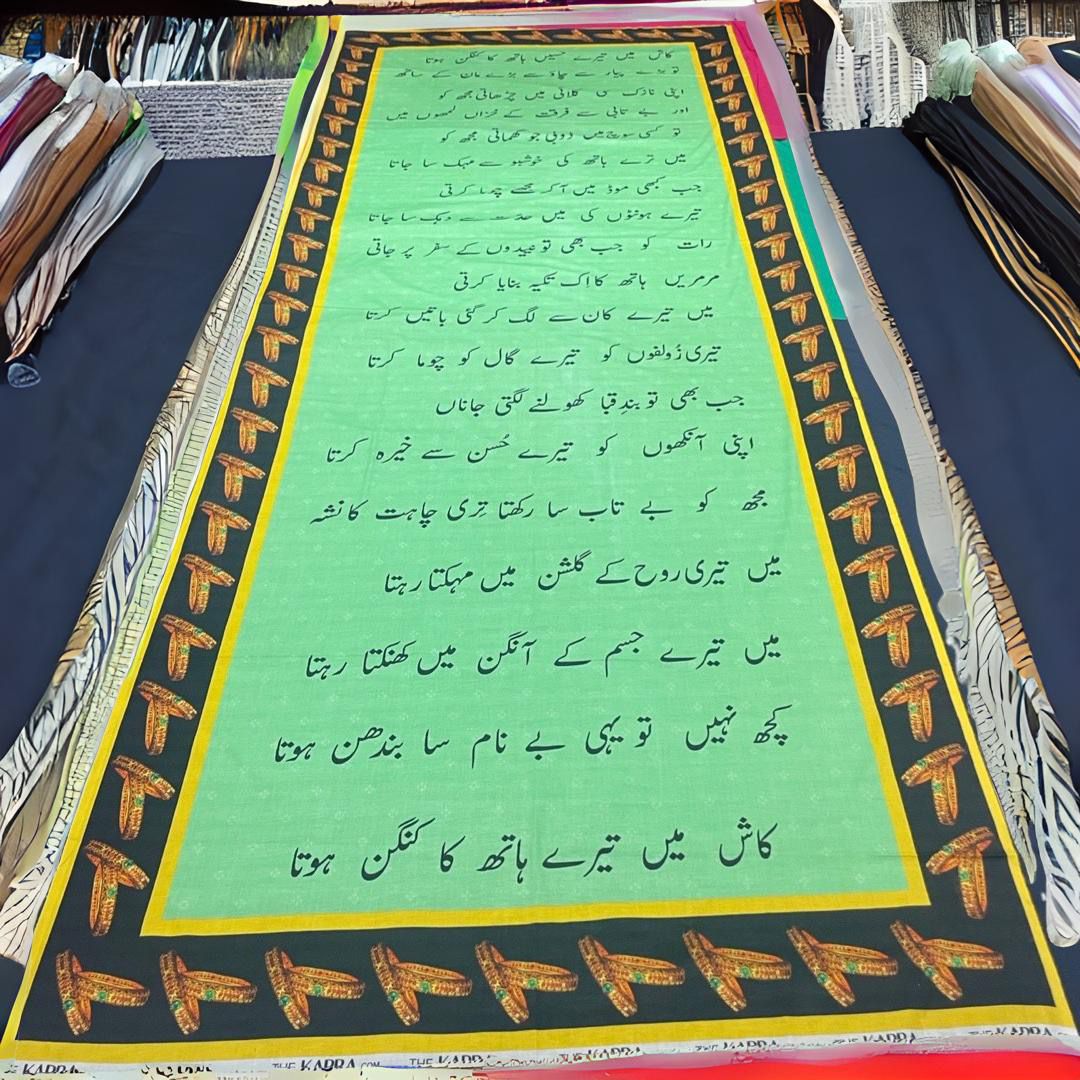 کاش میں تیرے حسیں ہاتھ کا کنگن ہوتا
تو بڑے پیار سے چاؤ سے بڑے مان کے ساتھ
اپنی نازک سی کلائی میں چڑھاتی مجھ کو
اور بے تابی سے فرقت کے خزاں لمحوں میں
تو کسی سوچ میں ڈوبی جو گھماتی مجھ کو
میں ترے ہاتھ کی خوشبو سے مہک سا جاتا
جب کبھی موڈ میں آ کر مجھے چوما کرتی
تیرے ہونٹوں کی میں حدت سے دہک سا جاتا
رات کو جب بھی تو نیندوں کے سفر پر جاتی
مرمریں ہاتھ کا اک تکیہ بنایا کرتی
میں تیرے کان سے لگ کر کئی باتیں کرتا
تیری زُلفوں کو تیرے گال کو چوما کرتا
جب بھی تو بندِ قبا کھولنے لگتی جاناں
اپنی آنکھوں کو تیرے حُسن سے خیرہ کرتا
مجھ کو بے تاب سا رکھتا تِری چاہت کا نشہ
میں تیری روح کے گلشن میں مہکتا رہتا
میں تیرے جسم کے آنگن میں کھنکتا رہتا
کچھ نہیں تو یہی بے نام سا بندھن ہوتا
کاش میں تیرے ہاتھ کا کنگن ہوتا
THE KAPRA.COM THE KAPRA